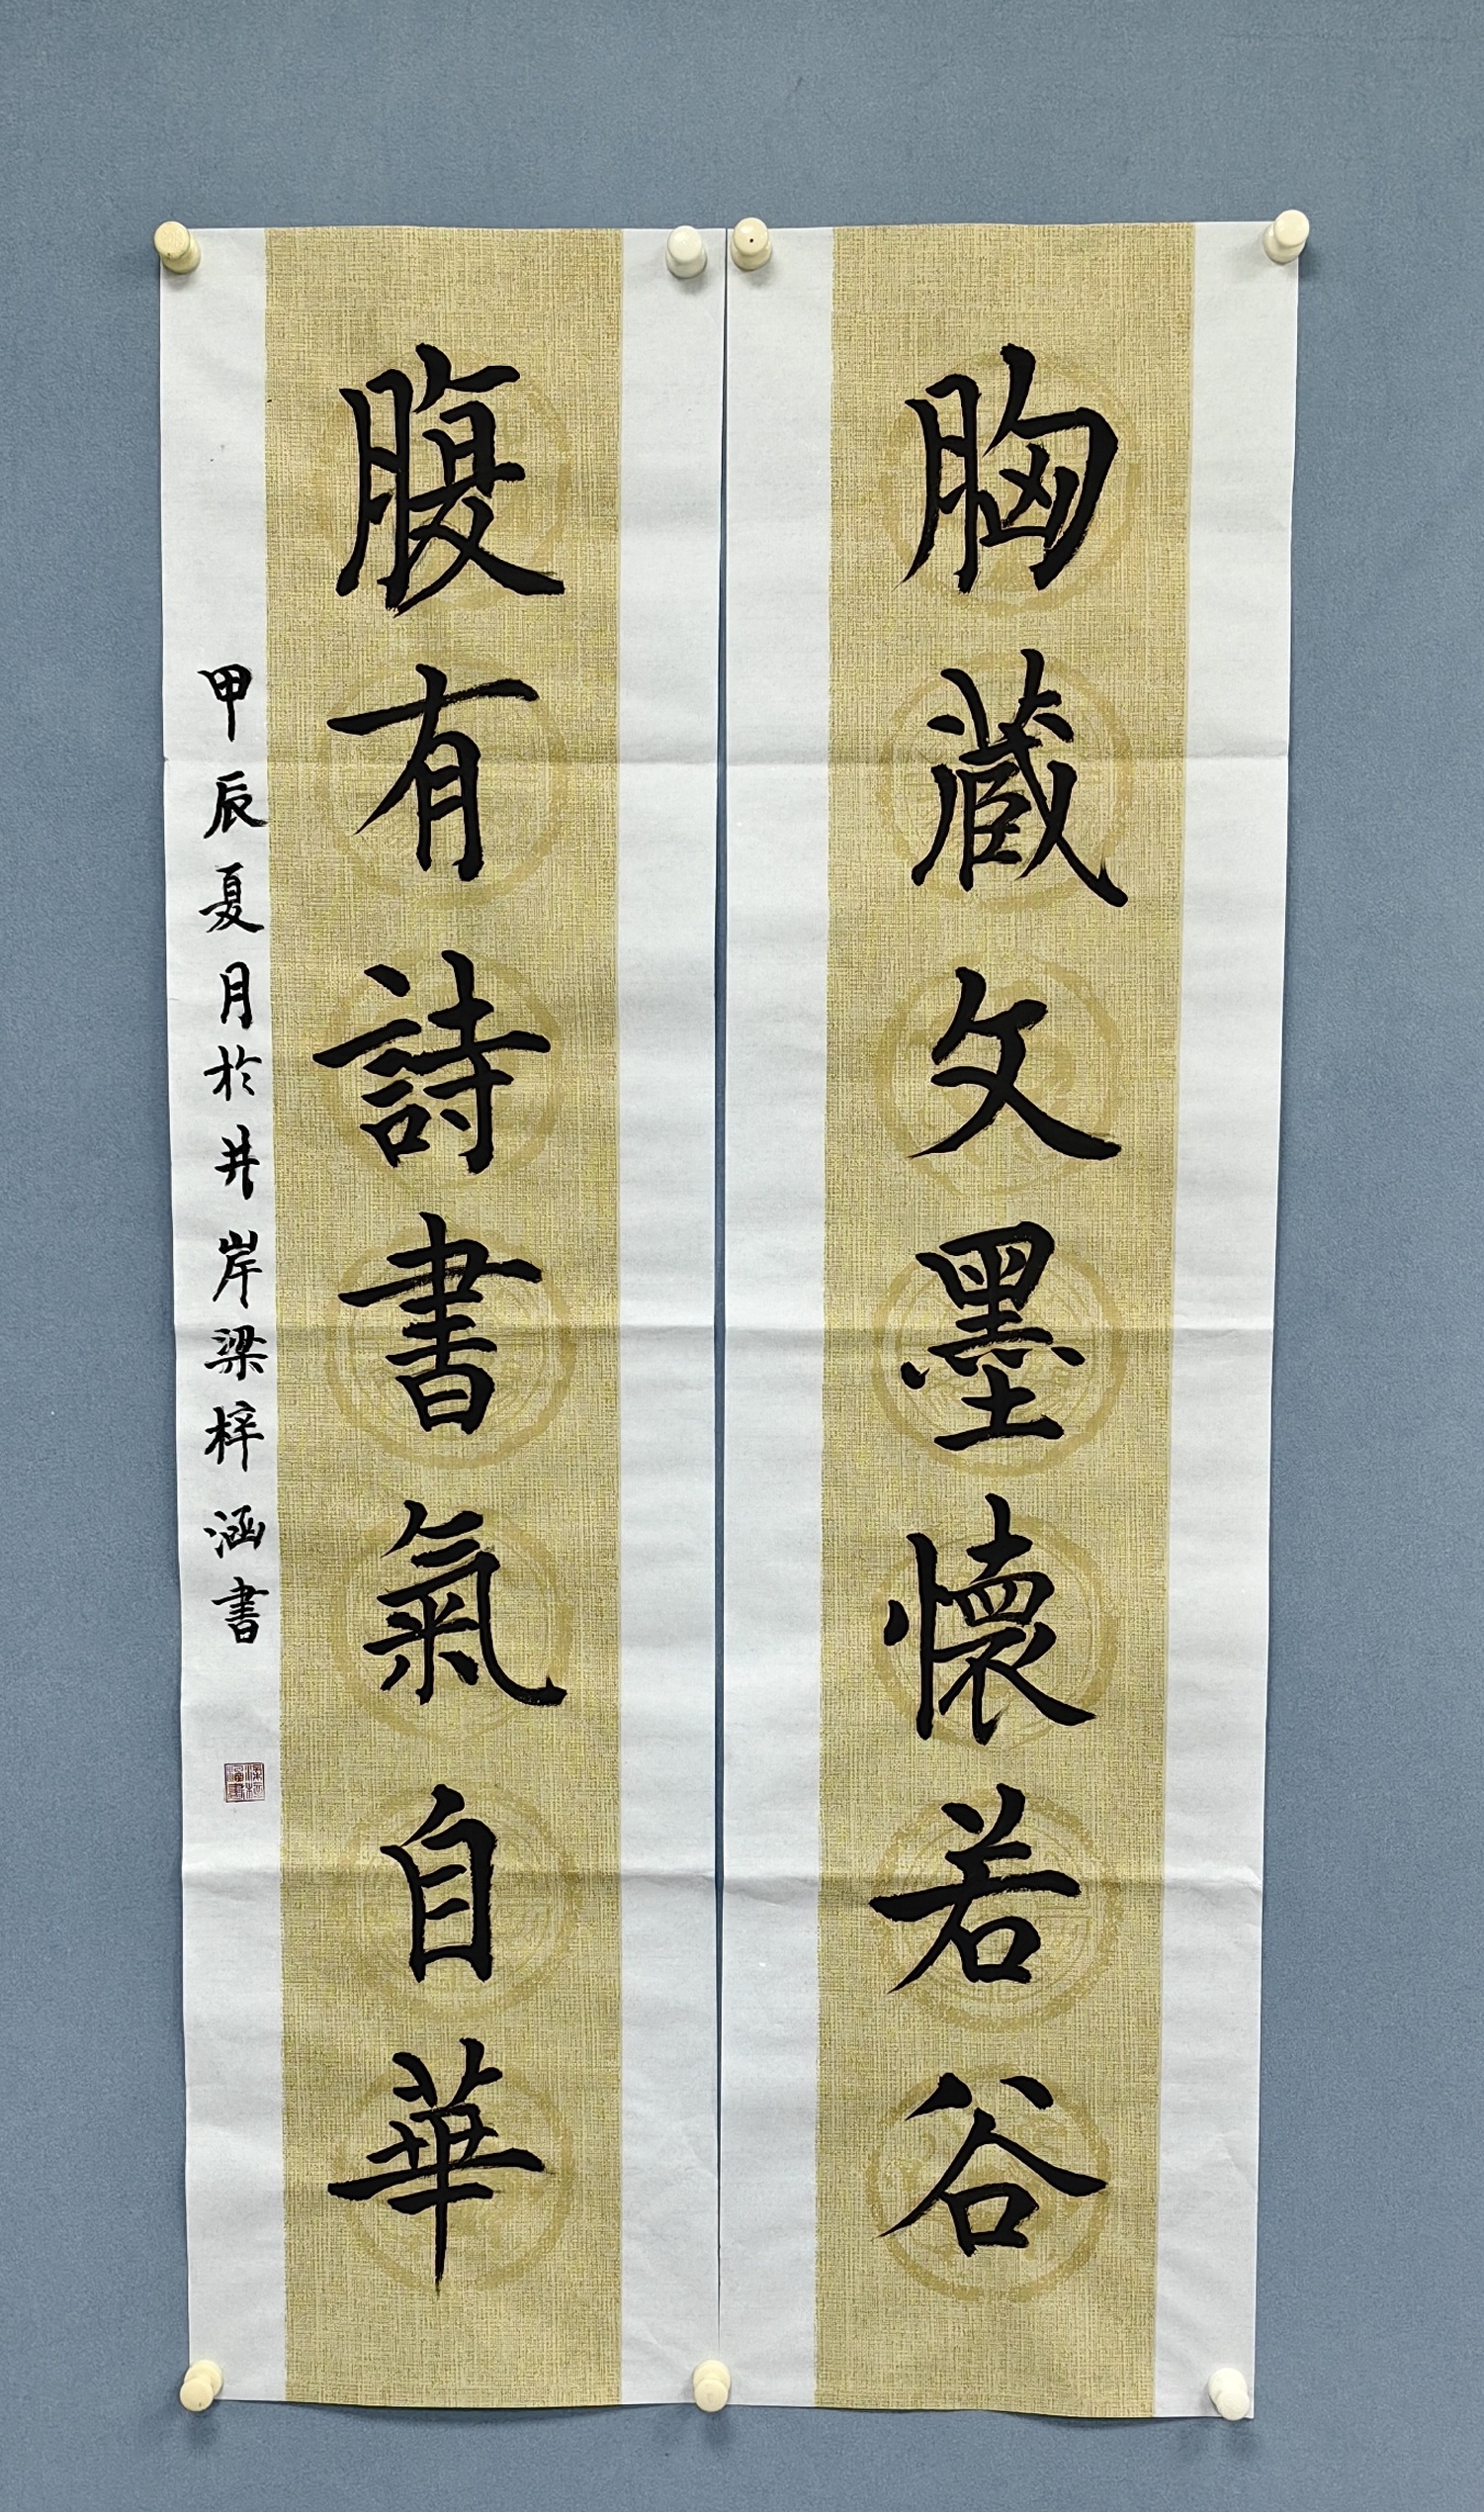 胸藏文墨懷若谷
腹有詩書氣自華
甲辰夏月於井岸梁梓涵書